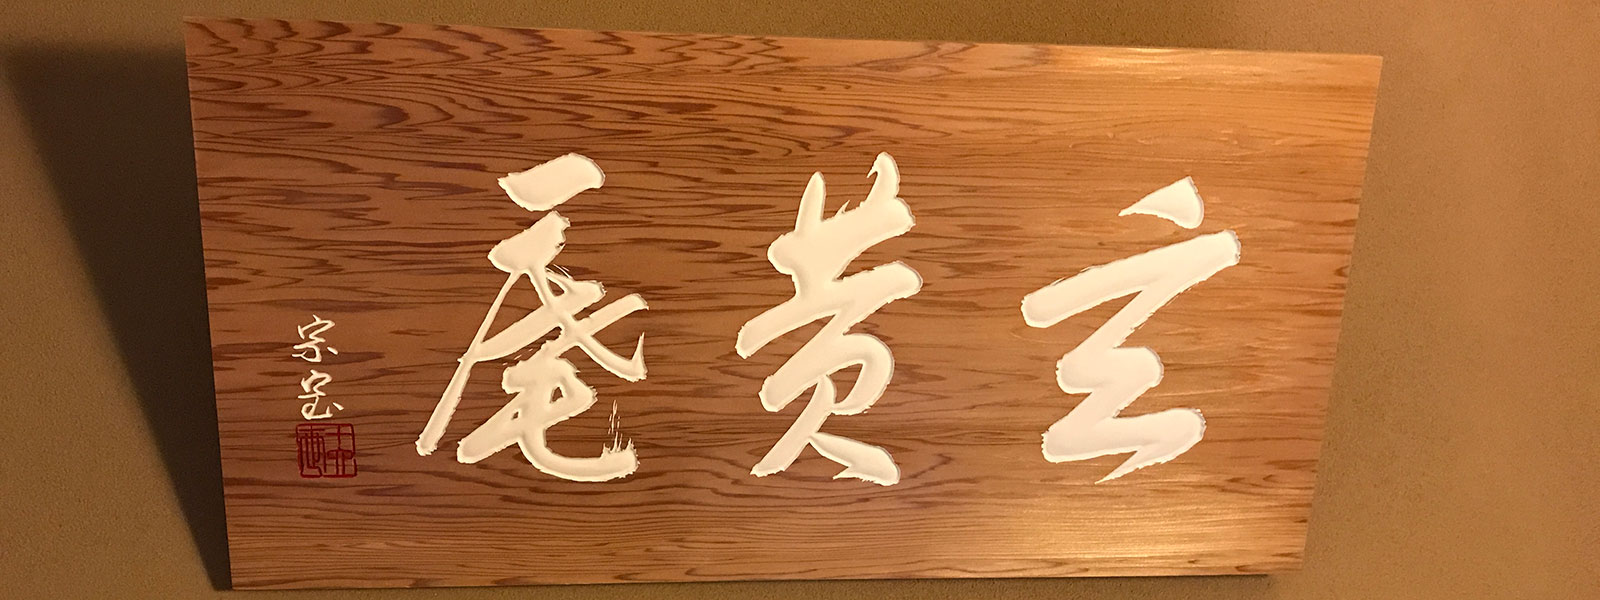 玄黄庵
宗室